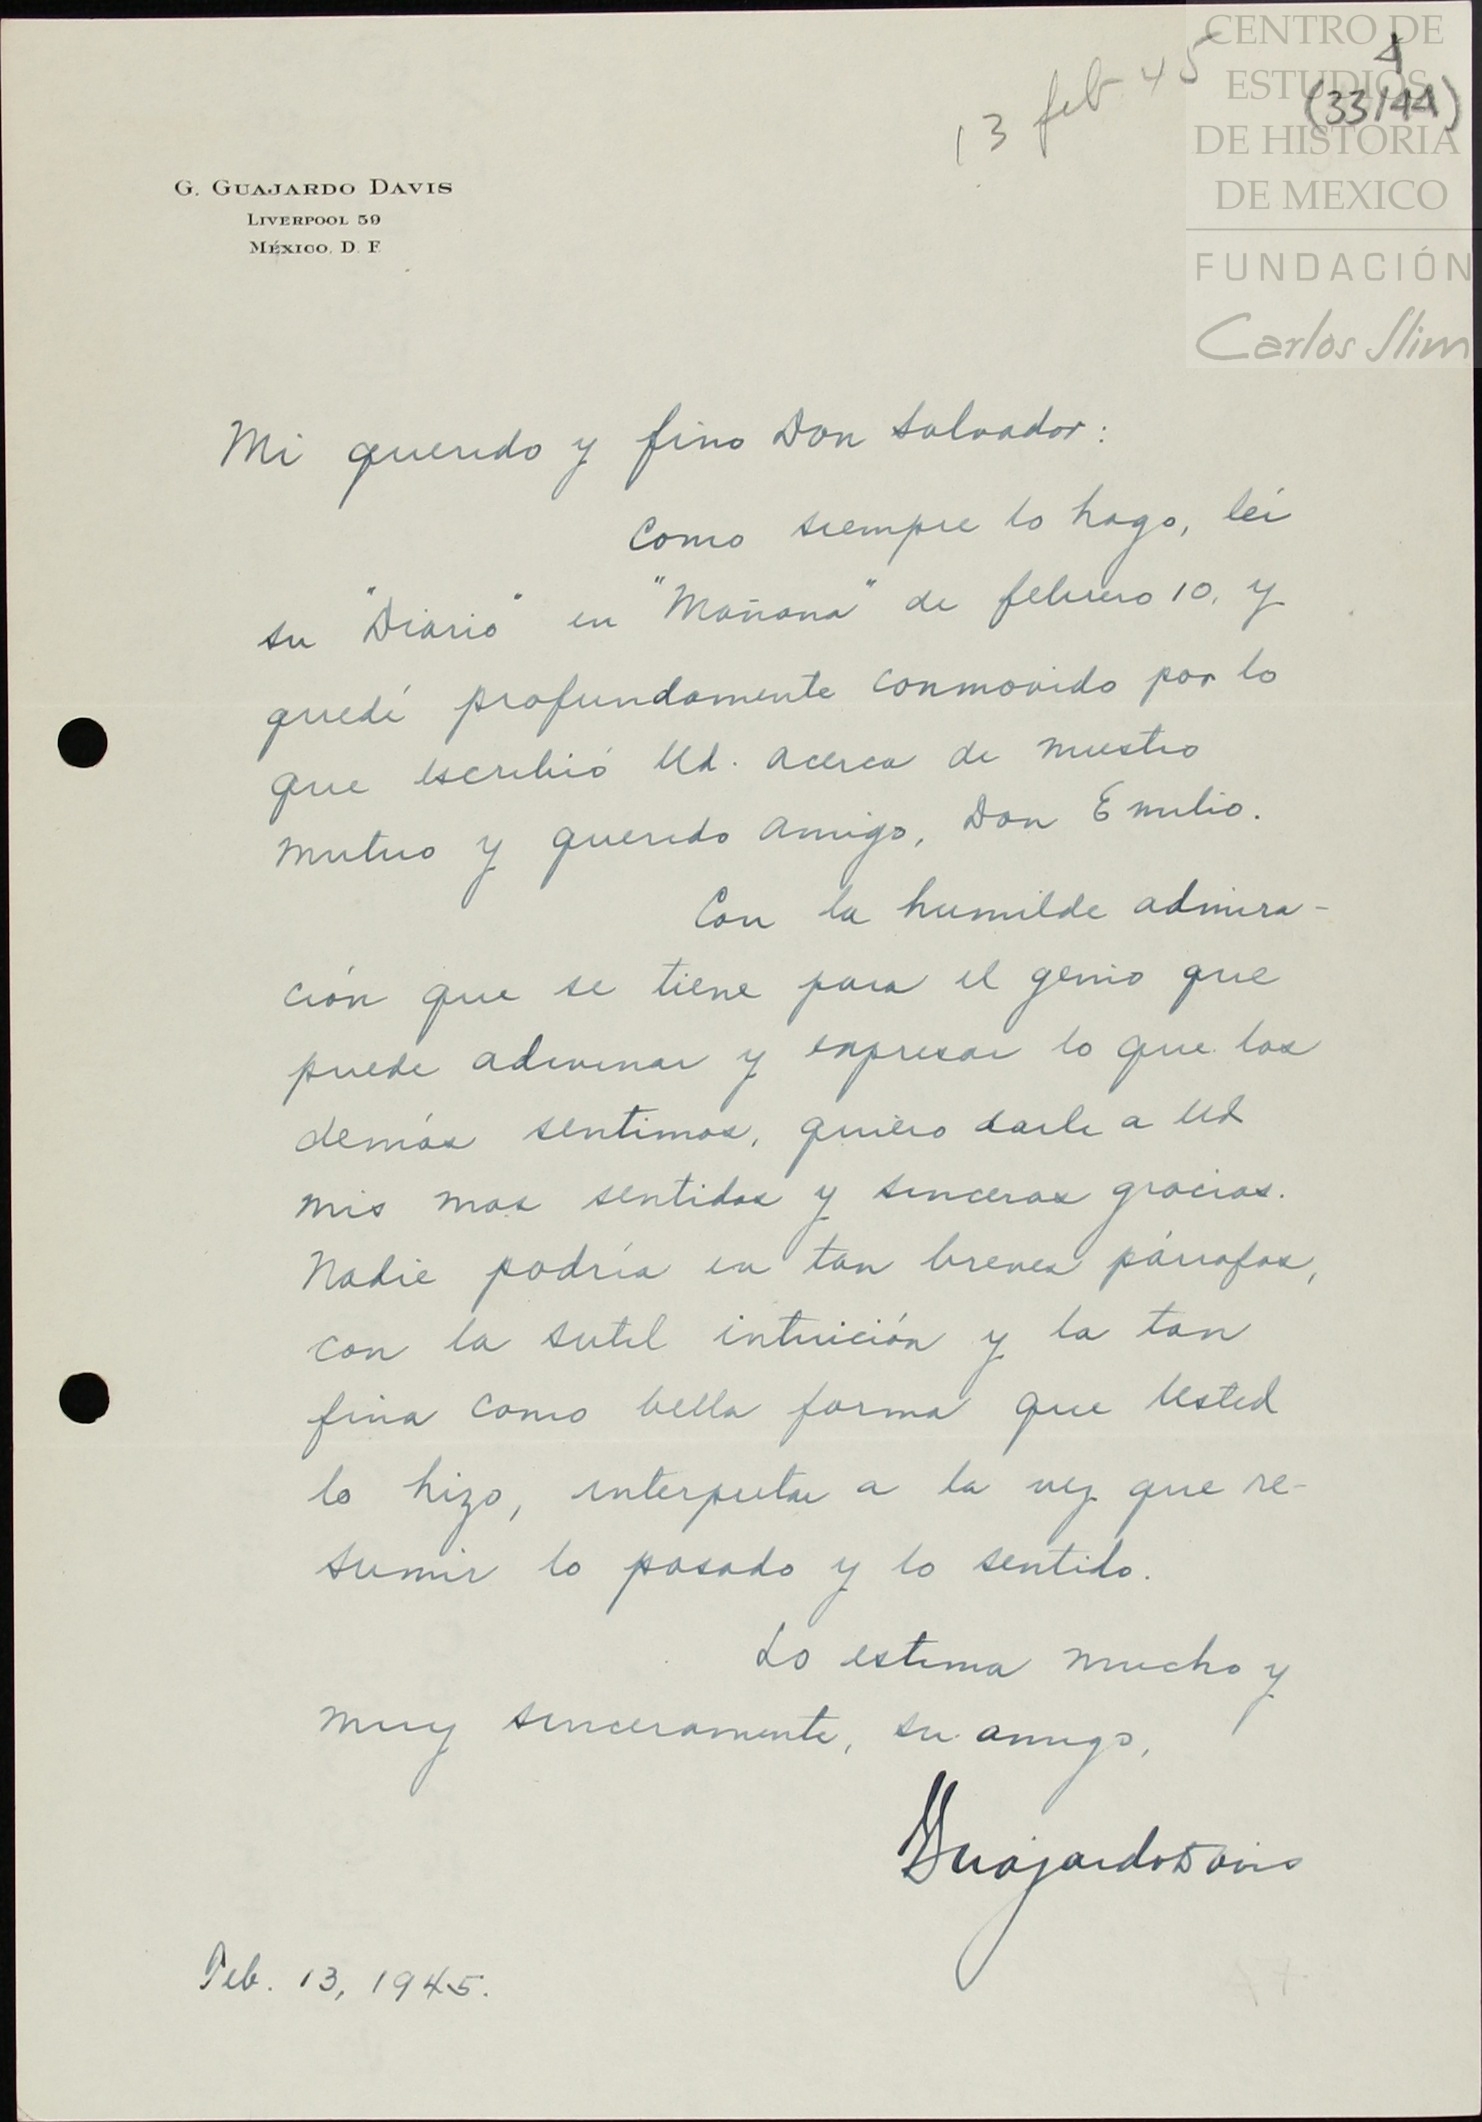 CENTRO DE
ESTUDIOS
DE HISTORIA
DE MEXICO
FUNDACIÓN
Carlos Slim
13 feb 45
4
(33/44)
G. GUAJARDO DAVIS
LIVERPOOL 59
MÉXICO, D. F.
Mi querido y fino Don Salvador:
Como siempre lo hago, leí
su "Diario" en "Mañana" de febrero 10, y
quedé profundamente conmovido por lo
que escribió Ud. acerca de nuestro
mutuo y querido amigo, Don Emilio.
Con la humilde admira-
ción que se tiene para el genio que
puede adivinar y expresar lo que los
demás sentimos, quiero darle a Ud
mis mas sentidas y sinceras gracias.
Nadie podría en tan breves párrafos,
con la sutil intuición y la tan
fina como bella forma que Usted
lo hizo, interpretar a la vez que re-
sumir lo pasado y lo sentido.
Lo estima mucho y
muy sinceramente, su amigo,
GuajardoDavis
Feb. 13, 1945.